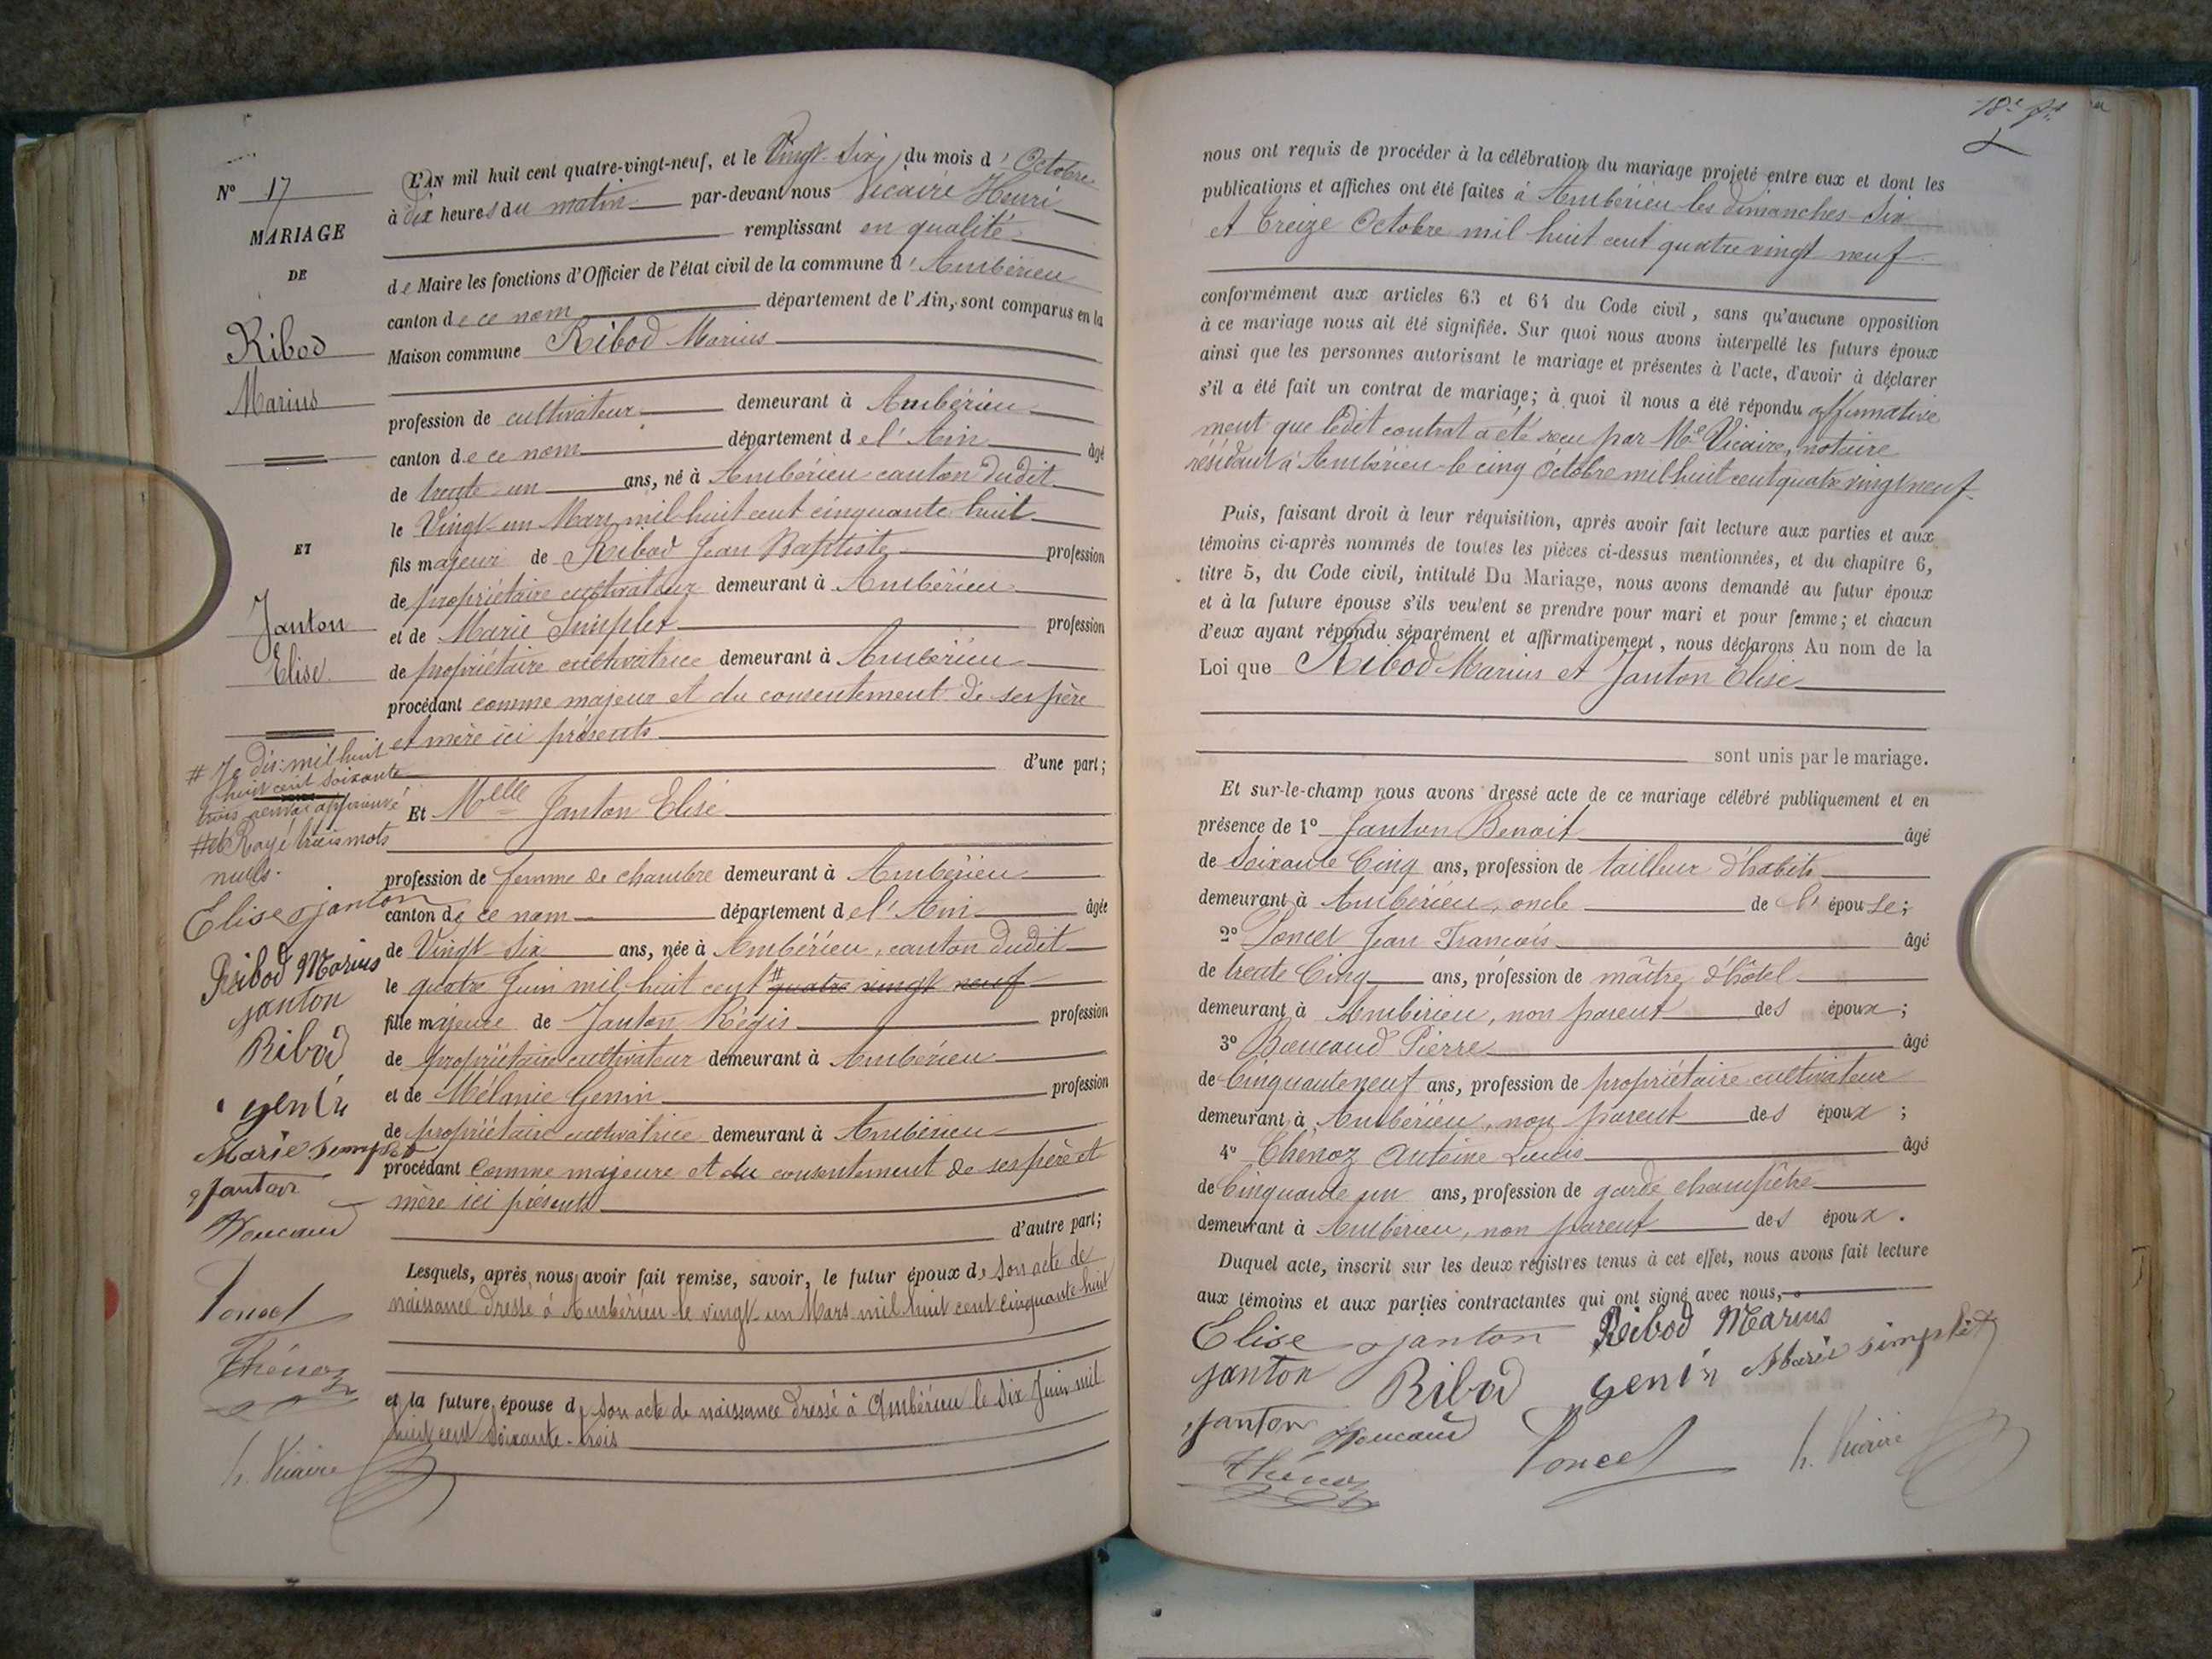 N° 17
MARIAGE
DE
Ribod
Marius
ET
Janton
Elise
# Je dis: mil huit
huit cent soixante
trois renvoi approuvé
# et Rayé trois mots
nuls.
Elise Janton
Ribod Marius
Janton
Ribod
Genin
Marie Simplet
Janton
Boucaud
Poncet
Thénoz
h. Vicaire
L'AN mil huit cent quatre-vingt-neuf, et le Vingt-Six du mois d'Octobre
à dix heures du matin par-devant nous Vicaire Henri
remplissant en qualité
de Maire les fonctions d'Officier de l'état civil de la commune d'Ambérieu
canton de ce nom département de l'Ain, sont comparus en la
Maison commune Ribod Marius
profession de cultivateur demeurant à Ambérieu
canton de ce nom département de l'Ain âgé
de trente-un ans, né à Ambérieu canton dudit
le Vingt-un Mars mil-huit cent cinquante huit
fils majeur de Ribod Jean Baptiste profession
de propriétaire cultivateur demeurant à Ambérieu
et de Marie Simplet profession
de propriétaire cultivatrice demeurant à Ambérieu
procédant comme majeur et du consentement de ses père
et mère ici présents
d'une part;
Et Melle Janton Elise
profession de femme de chambre demeurant à Ambérieu
canton de ce nom département de l'Ain âgée
de Vingt Six ans, née à Ambérieu, canton dudit
le quatre Juin mil huit cent # quatre vingt neuf
fille majeure de Janton Régis profession
de propriétaire cultivateur demeurant à Ambérieu
et de Mélanie Genin profession
de propriétaire cultivatrice demeurant à Ambérieu
procédant comme majeure et du consentement de ses père et
mère ici présents
d'autre part;
Lesquels, après nous avoir fait remise, savoir, le futur époux de son acte de
naissance dressé à Ambérieu le vingt-un Mars mil huit cent cinquante huit
et la future épouse de son acte de naissance dressé à Ambérieu le Six Juin mil
huit cent soixante-trois
nous ont requis de procéder à la célébration du mariage projeté entre eux et dont les
publications et affiches ont été faites à Ambérieu les dimanches Six
et Treize Octobre mil huit cent quatre vingt neuf
conformément aux articles 63 et 64 du Code civil, sans qu'aucune opposition
à ce mariage nous ait été signifiée. Sur quoi nous avons interpellé les futurs époux
ainsi que les personnes autorisant le mariage et présentes à l'acte, d'avoir à déclarer
s'il a été fait un contrat de mariage; à quoi il nous a été répondu affirmative
ment que ledit contrat a été reçu par Me Vicaire, notaire
résidant à Ambérieu le cinq Octobre mil-huit cent quatre vingt neuf
Puis, faisant droit à leur réquisition, après avoir fait lecture aux parties et aux
témoins ci-après nommés de toutes les pièces ci-dessus mentionnées, et du chapitre 6,
titre 5, du Code civil, intitulé Du Mariage, nous avons demandé au futur époux
et à la future épouse s'ils veulent se prendre pour mari et pour femme; et chacun
d'eux ayant répondu séparément et affirmativement, nous déclarons Au nom de la
Loi que Ribod Marius et Janton Elise
sont unis par le mariage.
Et sur-le-champ nous avons dressé acte de ce mariage célébré publiquement et en
présence de 1° Janton Benoit âgé
de Soixante Cinq ans, profession de tailleur d'habits
demeurant à Ambérieu, oncle de l'épouse;
2° Poncet Jean François âgé
de trente Cinq ans, profession de maître d'hôtel
demeurant à Ambérieu, non parent des époux;
3° Boucaud Pierre âgé
de Cinquante neuf ans, profession de propriétaire cultivateur
demeurant à Ambérieu, non parent des époux;
4° Thénoz Antoine Louis âgé
de Cinquante un ans, profession de garde champêtre
demeurant à Ambérieu, non parent des époux.
Duquel acte, inscrit sur les deux registres tenus à cet effet, nous avons fait lecture
aux témoins et aux parties contractantes qui ont signé avec nous,
Elise Janton Ribod Marius
Janton Ribod Genin Marie Simplet
Janton Boucaud
Thénoz Poncet h. Vicaire